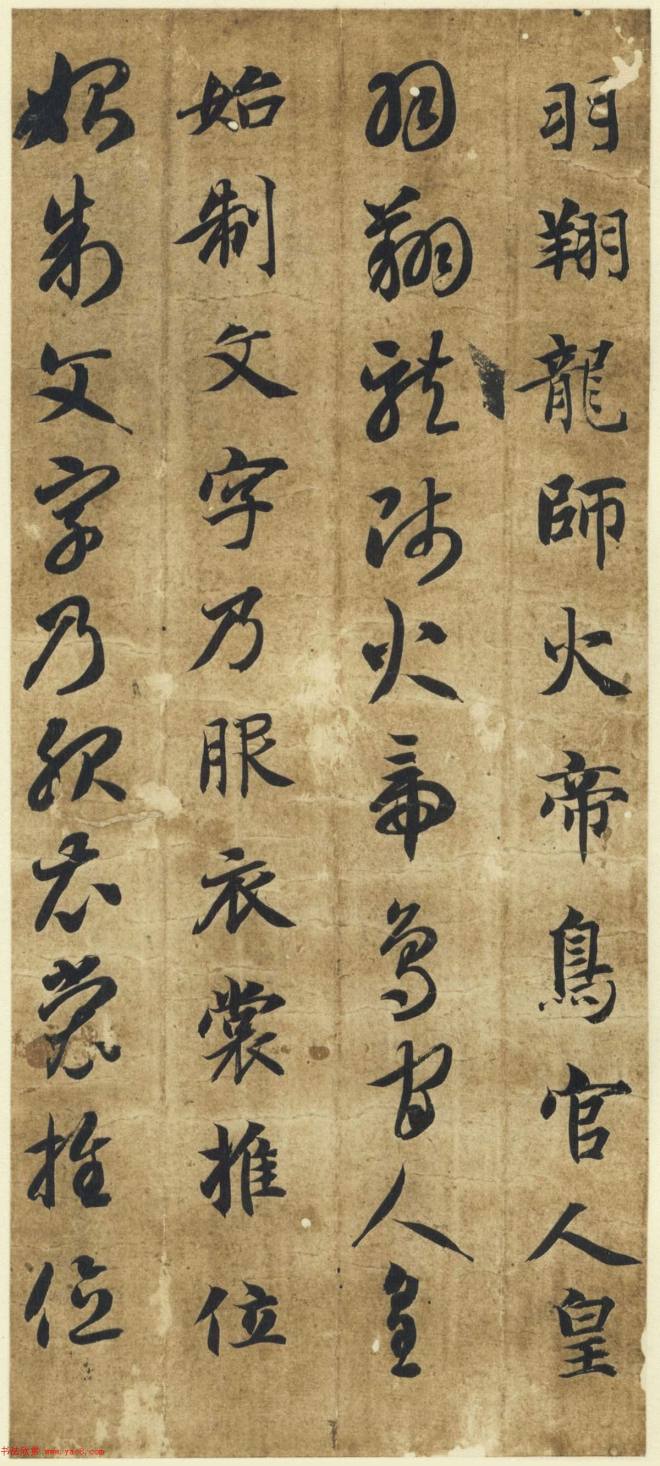 羽翔龍師火帝鳥官人皇
羽翔龍師火帝鳥官人皇
始制文字乃服衣裳推位
始制文字乃服衣裳推位
书法欣赏 www.yac8.com